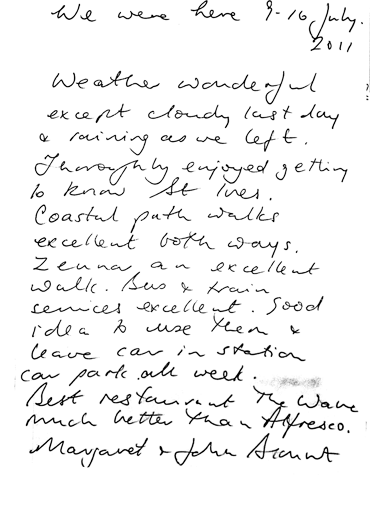 We were here 9-16 July.
2011
Weather wonderful
except cloudy last day
& raining as we left.
Thoroughly enjoyed getting
to know St Ives.
Coastal path walks
excellent both ways.
Zennor an excellent
walk. Bus & train
services excellent. Good
idea to use them &
leave car in station
car park all week.
Best restaurant The Wave
much better than Alfresco.
Margaret & John